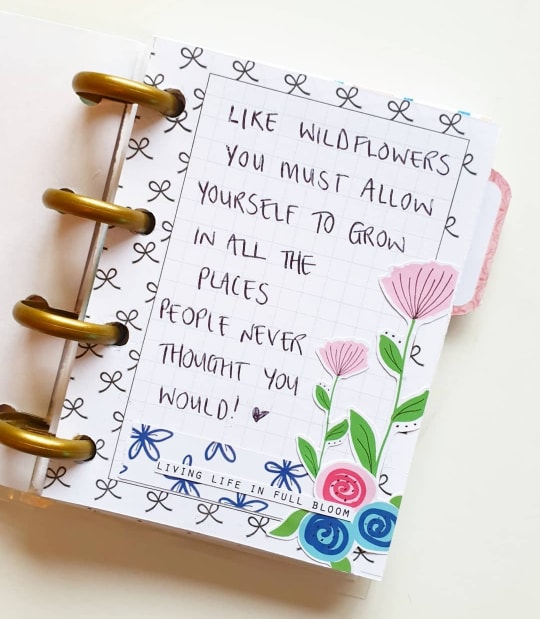 LIKE WILDFLOWERS
YOU MUST ALLOW
YOURSELF TO GROW
IN ALL THE
PLACES
PEOPLE NEVER
THOUGHT YOU
WOULD! ♥
LIVING LIFE IN FULL BLOOM